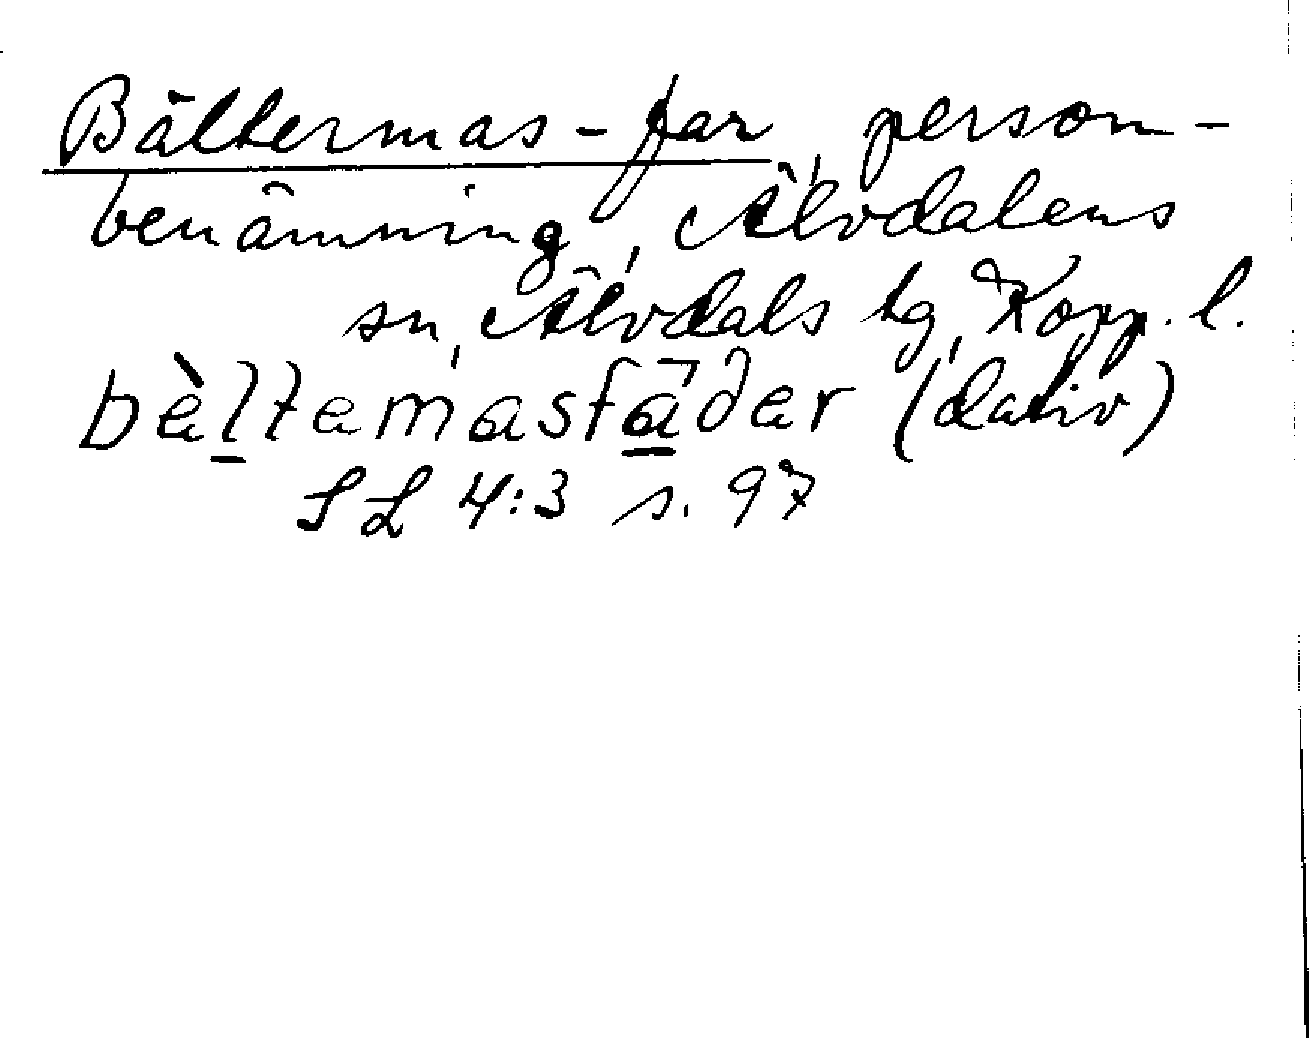 Bältermas-far, person-
benämning, Älvdalens
sn, Älvdals tg, Kopp. l.
bèltemasfāðer (dativ)
SL 4:3 s. 97